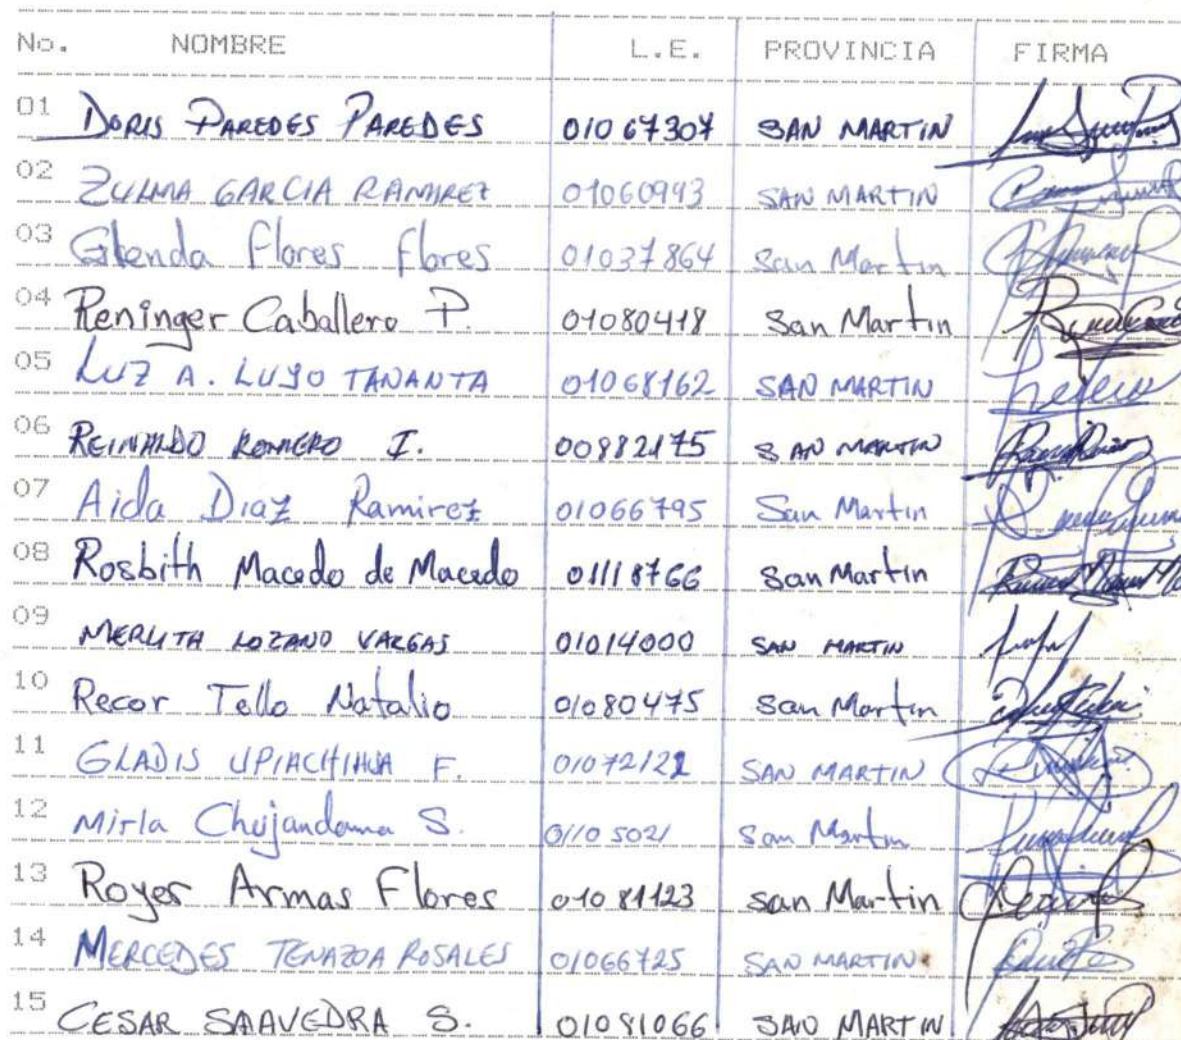 No. NOMBRE L.E. PROVINCIA FIRMA
01 DORIS PAREDES PAREDES 01067307 SAN MARTIN
02 ZULMA GARCIA RAMIREZ 01060993 SAN MARTIN
03 Glenda Flores Flores 01037864 San Martin
04 Reninger Caballero P. 01080418 San Martin
05 LUZ A. LUJO TANANTA 01068162 SAN MARTIN
06 REINALDO ROMERO I. 00882175 SAN MARTIN
07 Aida Diaz Ramirez 01066795 San Martin
08 Rosbith Macedo de Macedo 01118766 San Martin
09 MERLITH LOZANO VARGAS 01014000 SAN MARTIN
10 Recor Tello Natalio 01080475 San Martin
11 GLADIS UPIACHIHUA F. 01072122 SAN MARTIN
12 Mirla Chujandama S. 01105021 San Martin
13 Royer Armas Flores 01081123 San Martin
14 MERCEDES TENAZOA ROSALES 01066725 SAN MARTIN
15 CESAR SAAVEDRA S. 01081066 SAN MARTIN